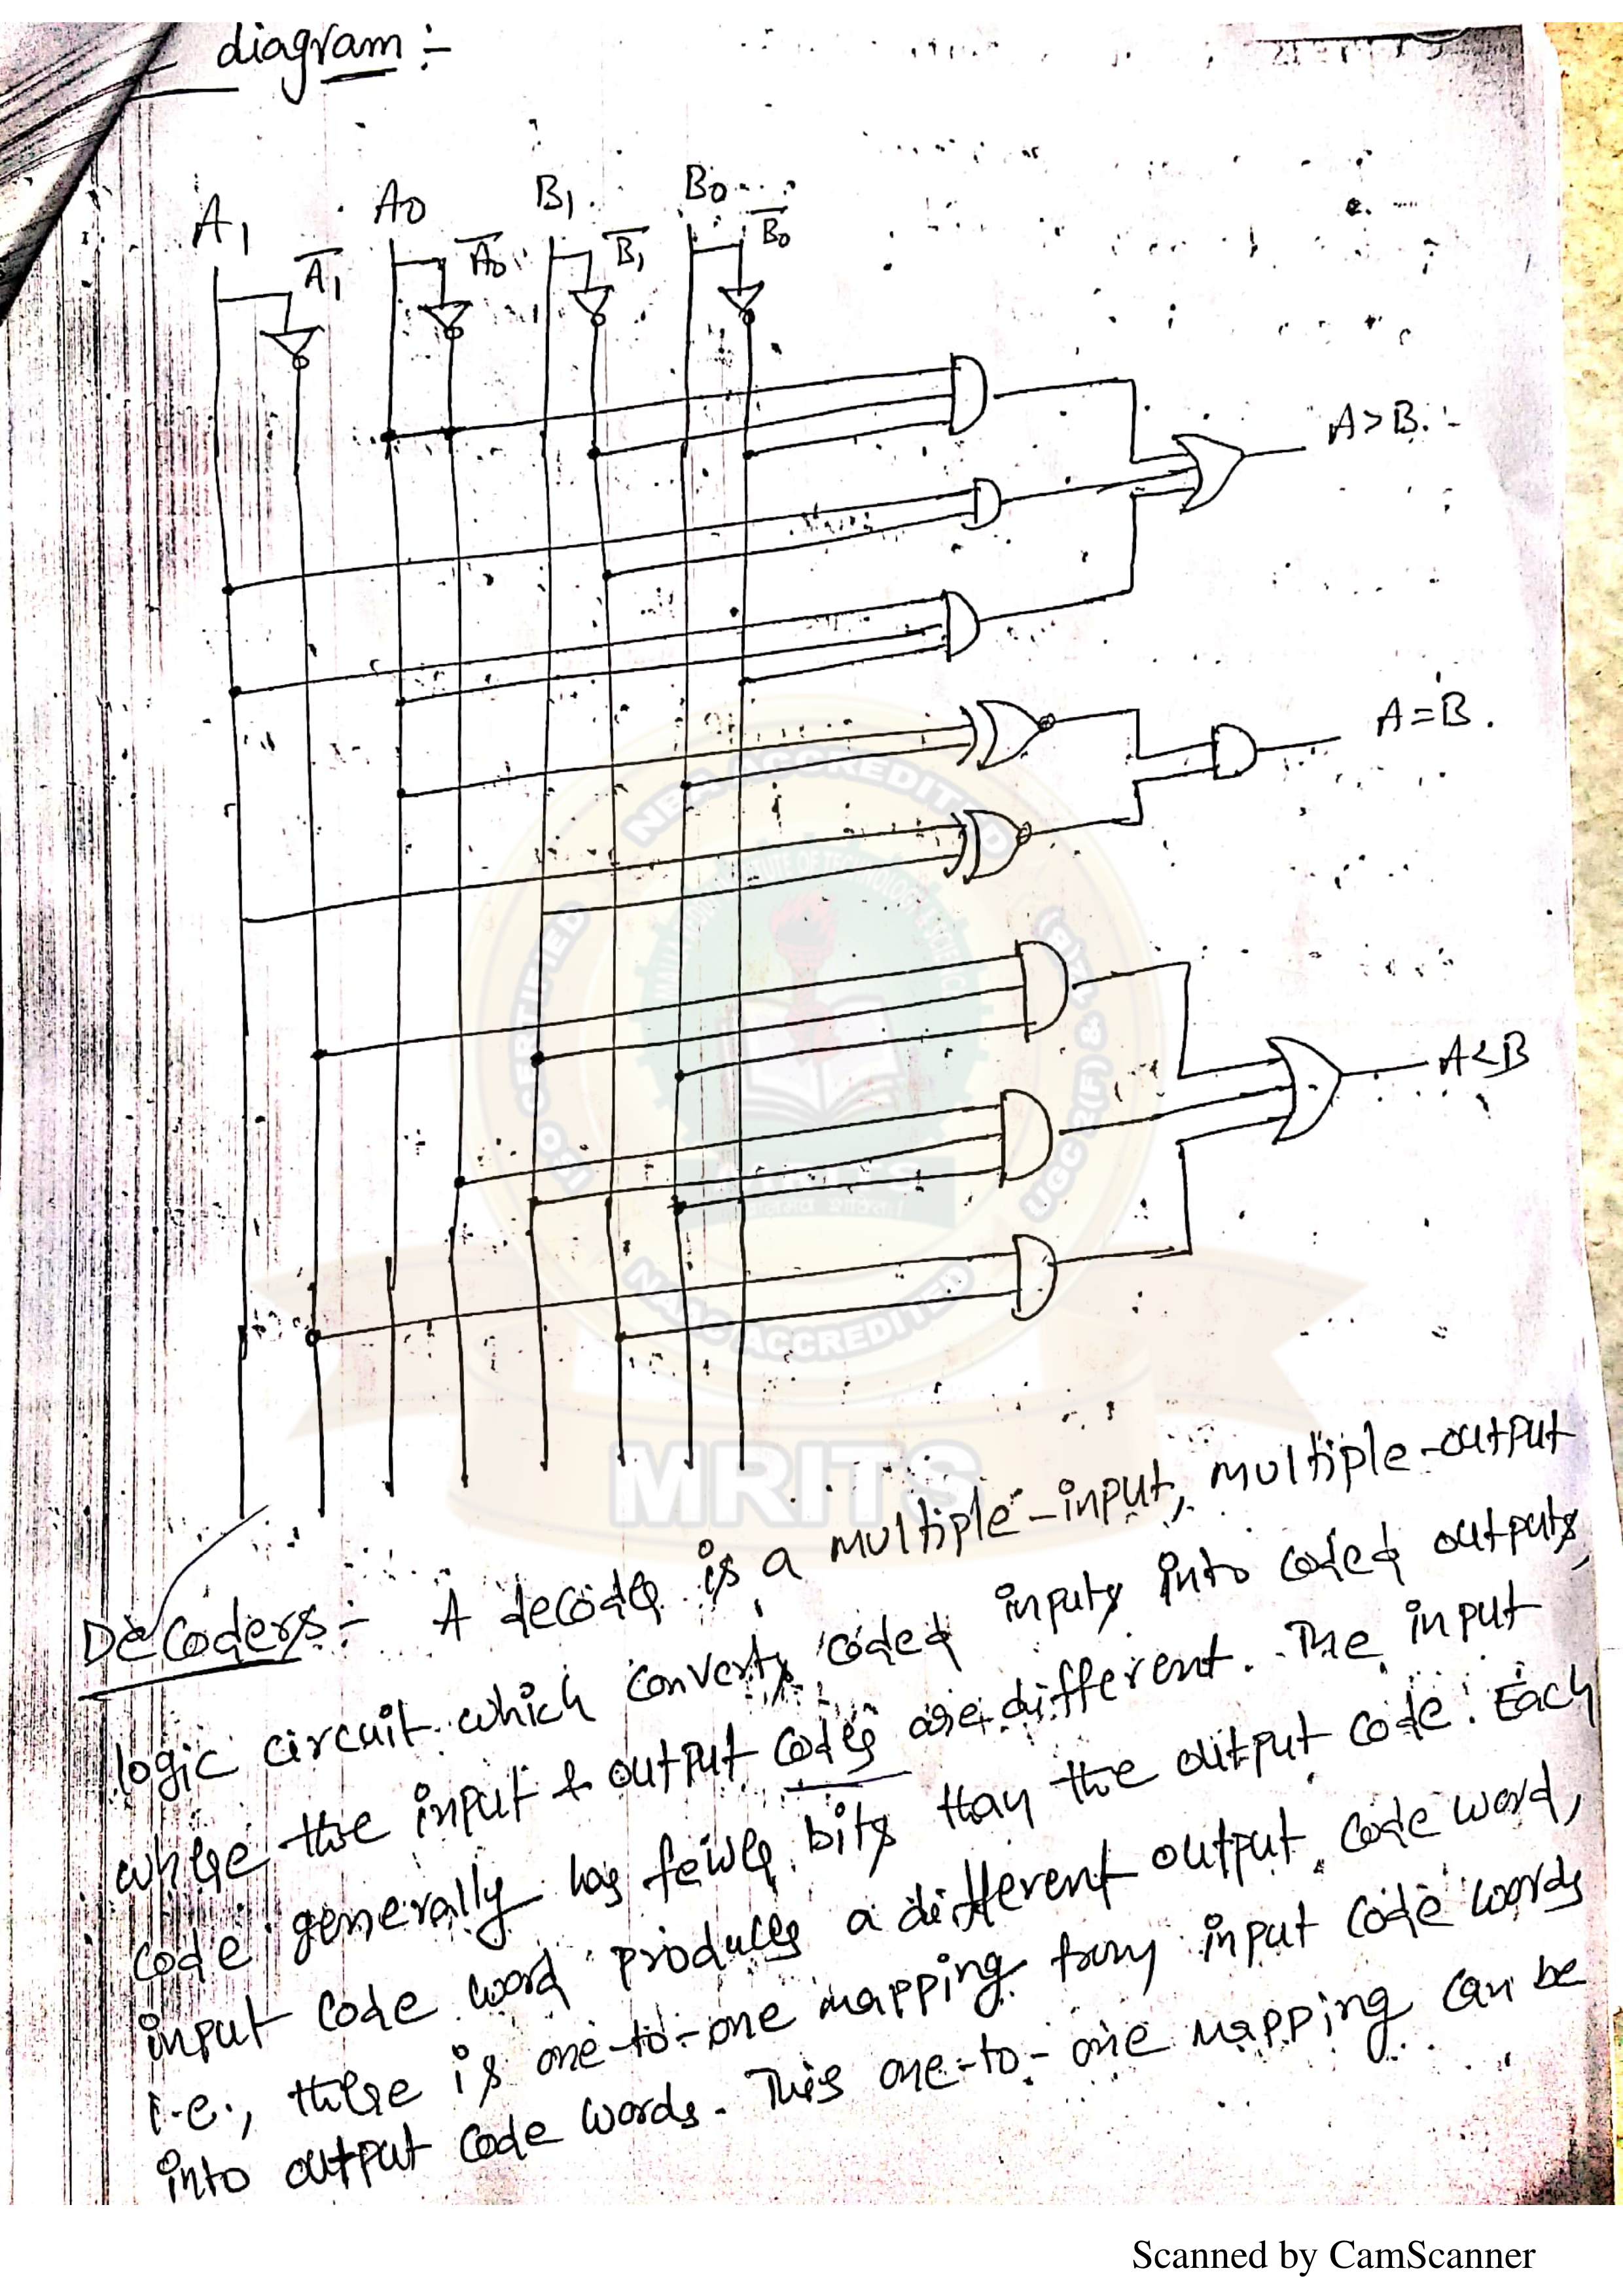 diagram :-
A1 A̅1̅ A0 A̅0̅ B1 B̅1̅ B0 B̅0̅
A>B.
A=B.
A<B
NBA ACCREDITED
CERTIFIED
UGC 2(F) &
MRITS
NAAC ACCREDITED
MRITS
Decoders:- A decoder is a multiple-input, multiple-output
logic circuit which converts coded inputs into coded outputs,
where the input & output codes are different. The input
code generally has fewer bits than the output code. Each
input code word produces a different output code word,
i.e., there is one-to-one mapping from input code words
into output code words. This one-to-one mapping can be
Scanned by CamScanner